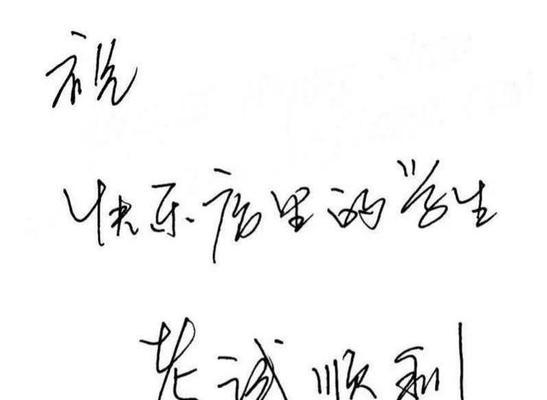 祝
快乐店里的学生
考试顺利